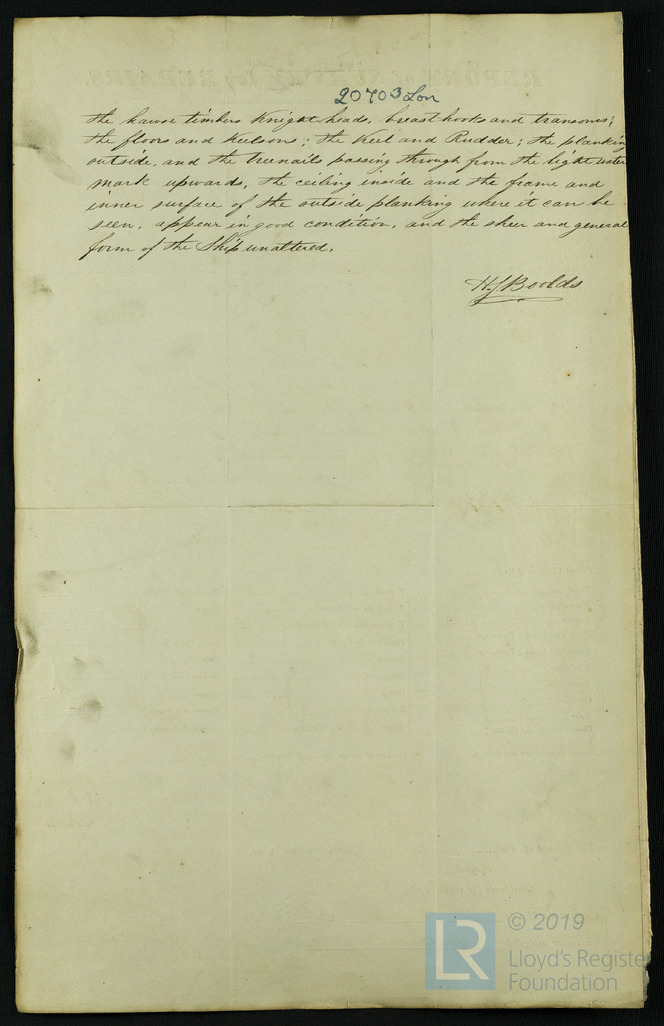 20703 Lon
the hawse timbers Knightheads, breasthooks and transoms;
the floors and Keelsons; the Keel and Rudder; the planking
outside, and the treenails passing through from the light water
mark upwards, the ceiling inside and the frame and
inner surface of the outside planking where it can be
seen, appear in good condition, and the sheer and general
form of the Ship unaltered.
H.J. Boolds
LR
© 2019
Lloyd's Registe
Foundation